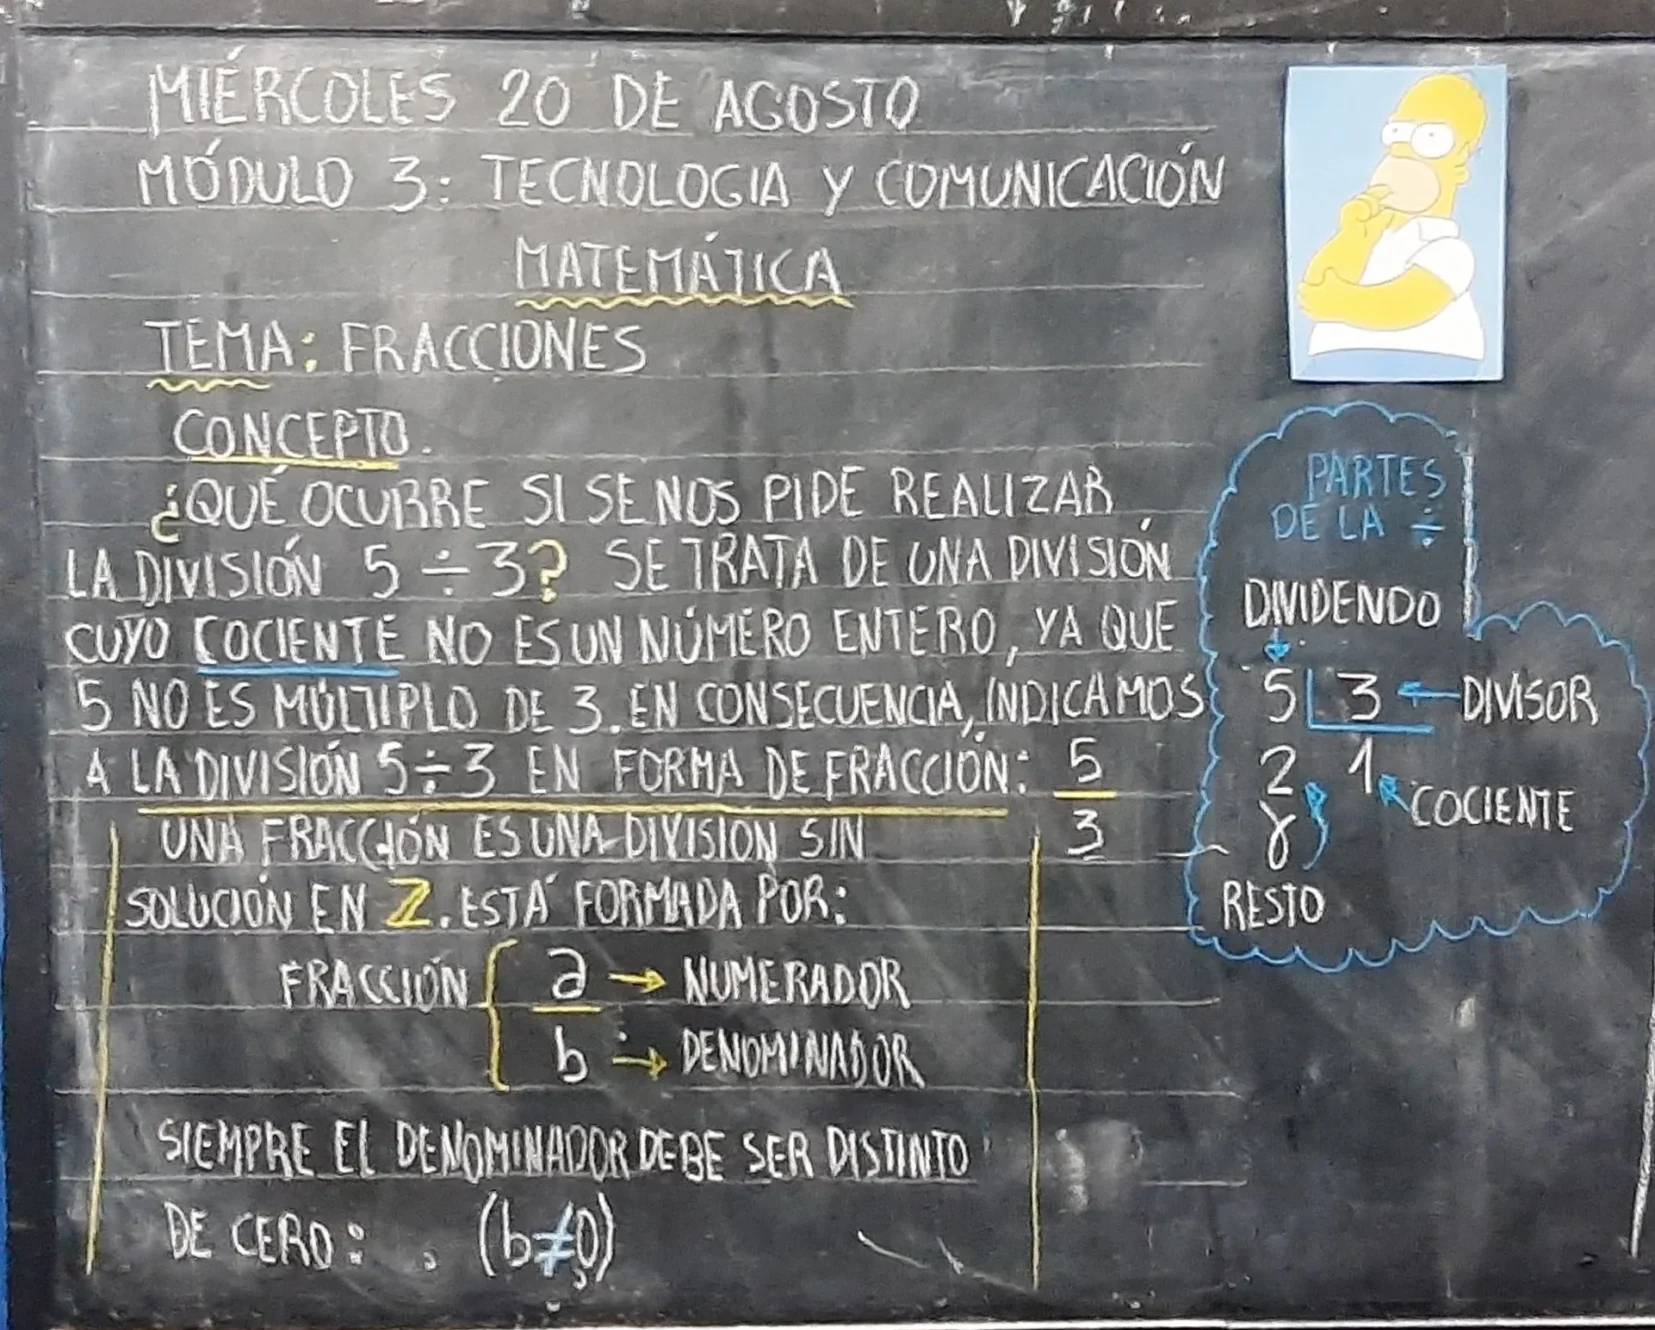 MIÉRCOLES 20 DE AGOSTO
MÓDULO 3: TECNOLOGIA Y COMUNICACIÓN
MATEMÁTICA
TEMA: FRACCIONES
CONCEPTO.
¿QUÉ OCURRE SI SE NOS PIDE REALIZAR
LA DIVISIÓN 5 ÷ 3? SE TRATA DE UNA DIVISIÓN
CUYO COCIENTE NO ES UN NÚMERO ENTERO, YA QUE
5 NO ES MÚLTIPLO DE 3. EN CONSECUENCIA, INDICAMOS
A LA DIVISIÓN 5÷3 EN FORMA DE FRACCIÓN: 5
3
UNA FRACCIÓN ES UNA DIVISION SIN
SOLUCIÓN EN Z. ESTÁ FORMADA POR:
FRACCIÓN { a → NUMERADOR
b → DENOMINADOR
SIEMPRE EL DENOMINADOR DEBE SER DISTINTO
DE CERO: (b≠0)
PARTES
DE LA ÷
DIVIDENDO
5 3 ← DIVISOR
2 1
COCIENTE
RESTO